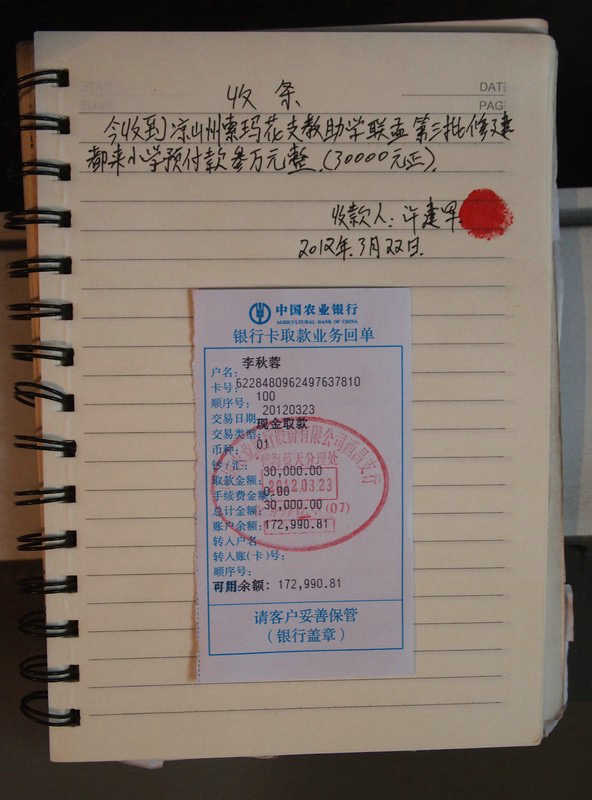 DATE
PAG
收条
今收到凉山州索玛花支教助学联盟第三批修建
都来小学预付款叁万元整.(30000元正).
收款人:许建军
2012年.3月22日.
中国农业银行
AGRICULTURAL BANK OF CHINA
银行卡取款业务回单
户名: 李秋蓉
卡号: 6228480962497637810
顺序号: 100
交易日期: 20120323
交易类型: 现金取款
币种: 01
钞/汇:
取款金额: 30,000.00
手续费金额: 0.00
总计金额: 30,000.00
账户余额: 172,990.81
转入户名:
转入账(卡)号:
顺序号:
可用余额: 172,990.81
股份有限公司西昌支行
航天分理处
2012.03.23
(07)
请客户妥善保管
(银行盖章)